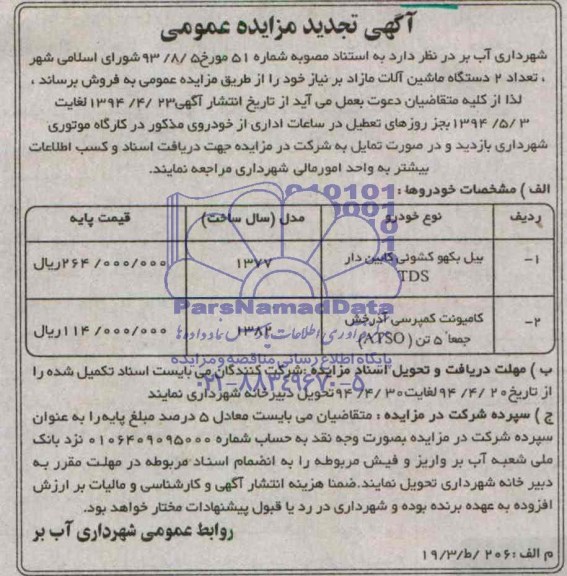 آگهی تجدید مزایده عمومی
شهرداری آب بر در نظر دارد به استناد مصوبه شماره ۵۱ مورخ۵ /۸ /۹۳ شورای اسلامی شهر
، تعداد ۲ دستگاه ماشین آلات مازاد بر نیاز خود را از طریق مزایده عمومی به فروش برساند ،
لذا از کلیه متقاضیان دعوت بعمل می آید از تاریخ انتشار آگهی۲۳ /۴ /۱۳۹۴ لغایت
۳ /۵ /۱۳۹۴ بجز روزهای تعطیل در ساعات اداری از خودروی مذکور در کارگاه موتوری
شهرداری بازدید و در صورت تمایل به شرکت در مزایده جهت دریافت اسناد و کسب اطلاعات
بیشتر به واحد امورمالی شهرداری مراجعه نمایند.
الف ) مشخصات خودروها :
ردیف نوع خودرو مدل (سال ساخت) قیمت پایه
۱– بیل بکهو کشوئی کابین دار ۱۳۷۷ ۲۶۴/۰۰۰/۰۰۰ریال
TDS
۲– کامیونت کمپرسی آذرخش ۱۳۸۲ ۱۱۴/۰۰۰/۰۰۰ریال
جمعاً ۵ تن (ATSO)
ParsNamadData
پایگاه اطلاع رسانی مناقصه و مزایده
۰۲۱-۸۸۳۴۹۶۷۰-۵
ب ) مهلت دریافت و تحویل اسناد مزایده :شرکت کنندگان می بایست اسناد تکمیل شده را
از تاریخ۲۰ /۴ /۹۴ لغایت۳۰ /۴ /۹۴تحویل دبیرخانه شهرداری نمایند
ج ) سپرده شرکت در مزایده : متقاضیان می بایست معادل ۵ درصد مبلغ پایه را به عنوان
سپرده شرکت در مزایده بصورت وجه نقد به حساب شماره ۰۱۰۶۴۰۹۰۹۵۰۰۰ نزد بانک
ملی شعبه آب بر واریز و فیش مربوطه را به انضمام اسناد مربوطه در مهلت مقرر به
دبیر خانه شهرداری تحویل نمایند.ضمنا هزینه انتشار آگهی و کارشناسی و مالیات بر ارزش
افزوده به عهده برنده بوده و شهرداری در رد یا قبول پیشنهادات مختار خواهد بود.
روابط عمومی شهرداری آب بر
م الف :۲۰۶ /ط/۱۹/۳